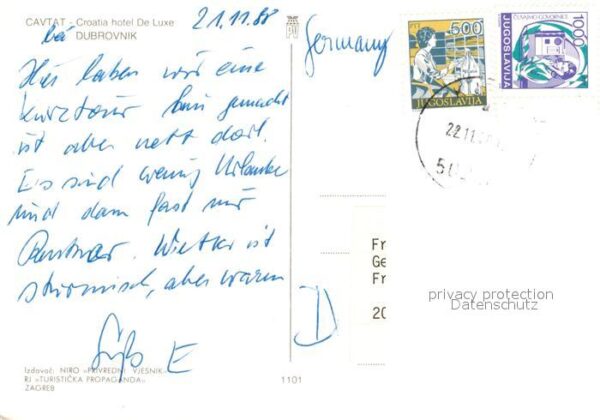 CAVTAT - Croatia hotel De Luxe
bei DUBROVNIK
21.11.88
Germany
500
JUGOSLAVIJA
ČUVAJMO GOVORNICE
1000
JUGOSLAVIJA
22.11.
Hier haben wir eine
Kurztour hin gemacht
ist aber nett dort.
Es sind wenig Urlauber
und dann fast nur
Rentner. Wetter ist
stürmisch, aber warm
E
D
Fr
Ge
Fr
20
privacy protection
Datenschutz
Izdavač: NIRO »PRIVREDNI VJESNIK«
RJ »TURISTIČKA PROPAGANDA«
ZAGREB
1101